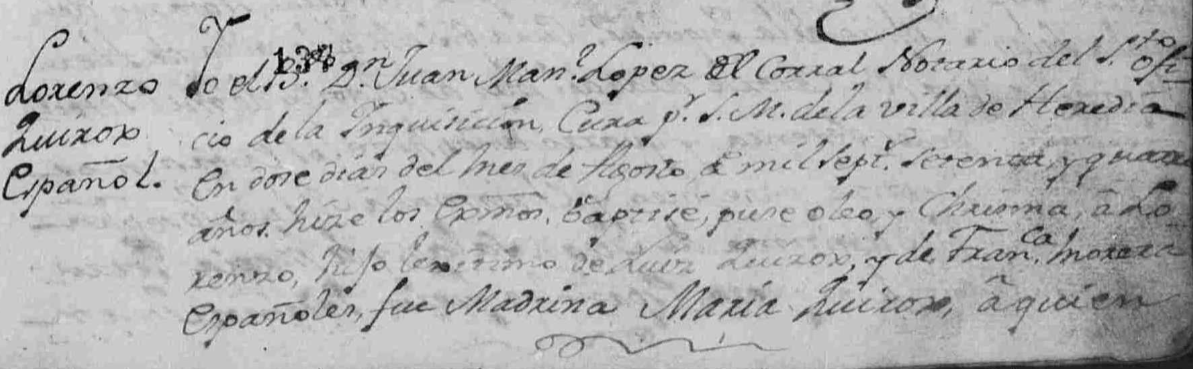 Lorenzo
Quirox
Español.
138
Yo el B.r D.n Juan Man.l Lopez del Corral Notario del S.to Ofi-
cio de la Inquisicion, Cura p.r S. M. de la villa de Heredia
en dose dias del mes de Agosto de mil sept.s setenta, y quatro
años. hize los exmos. baptisé, puse oleo, y Chrisma, â Lo-
renzo, hijo lexitimo de Luis Quirox, y de Fran.ca Morera
españoles, fue Madrina Maria Quirox, â quien